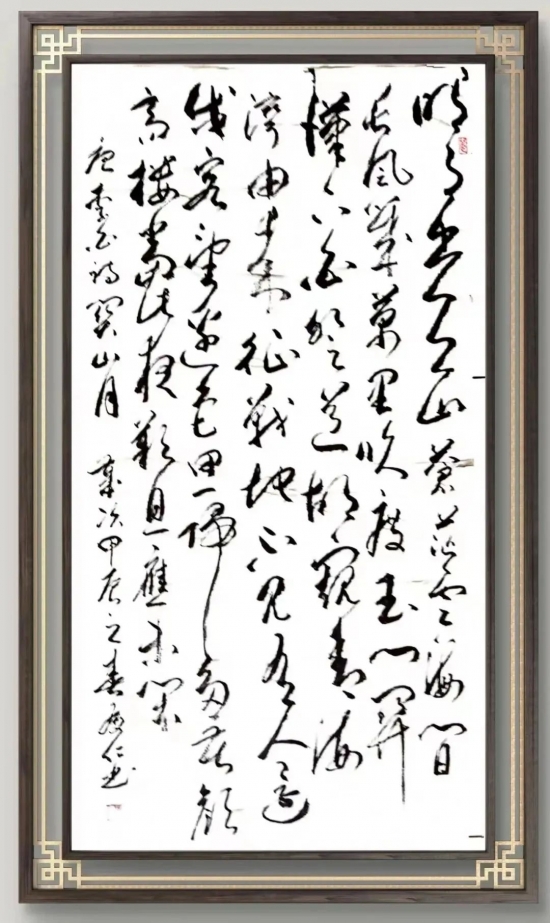 明月出天山蒼茫雲海間
長風幾萬里吹度玉門關
漢下白登道胡窺青海
灣由來征戰地不見有人還
戍客望邊色思歸多苦顏
高樓當此夜歎息應未閑
唐李白詩關山月 歲次甲辰之春 仁書